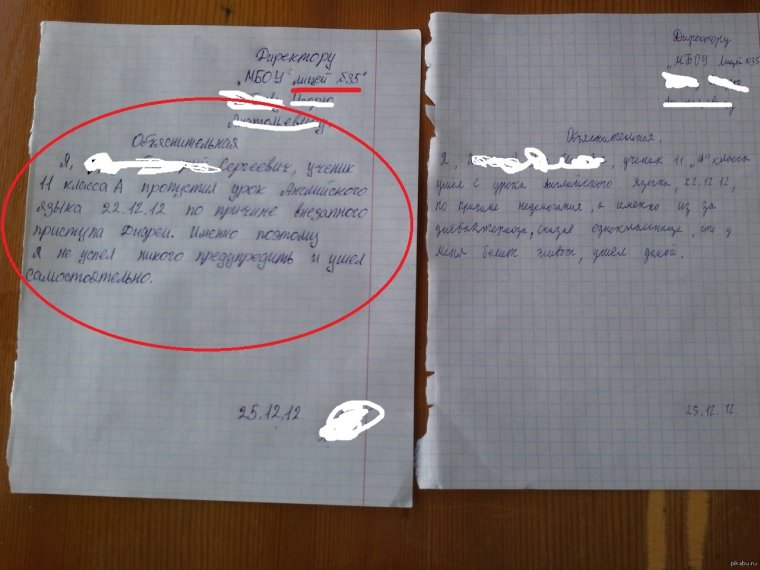 Директору
„МБОУ лицей №35"
Анатольевичу
Объяснительная
Я, Сергеевич, ученик
11 класса А пропустил урок Английского
языка 22.12.12 по причине внезапного
приступа Диареи. Именно поэтому
Я не успел никого предупредить и ушел
самостоятельно.
25.12.12
Директору
„МБОУ Лицей №35
Объяснительная.
Я, , ученик 11 „А" класса
ушел с урока Английского языка, 22.12.12,
по причине недомогания, а именно из за
сказал однокласнице, что у
меня болит живот, ушёл домой.
25.12.12.
pikabu.ru